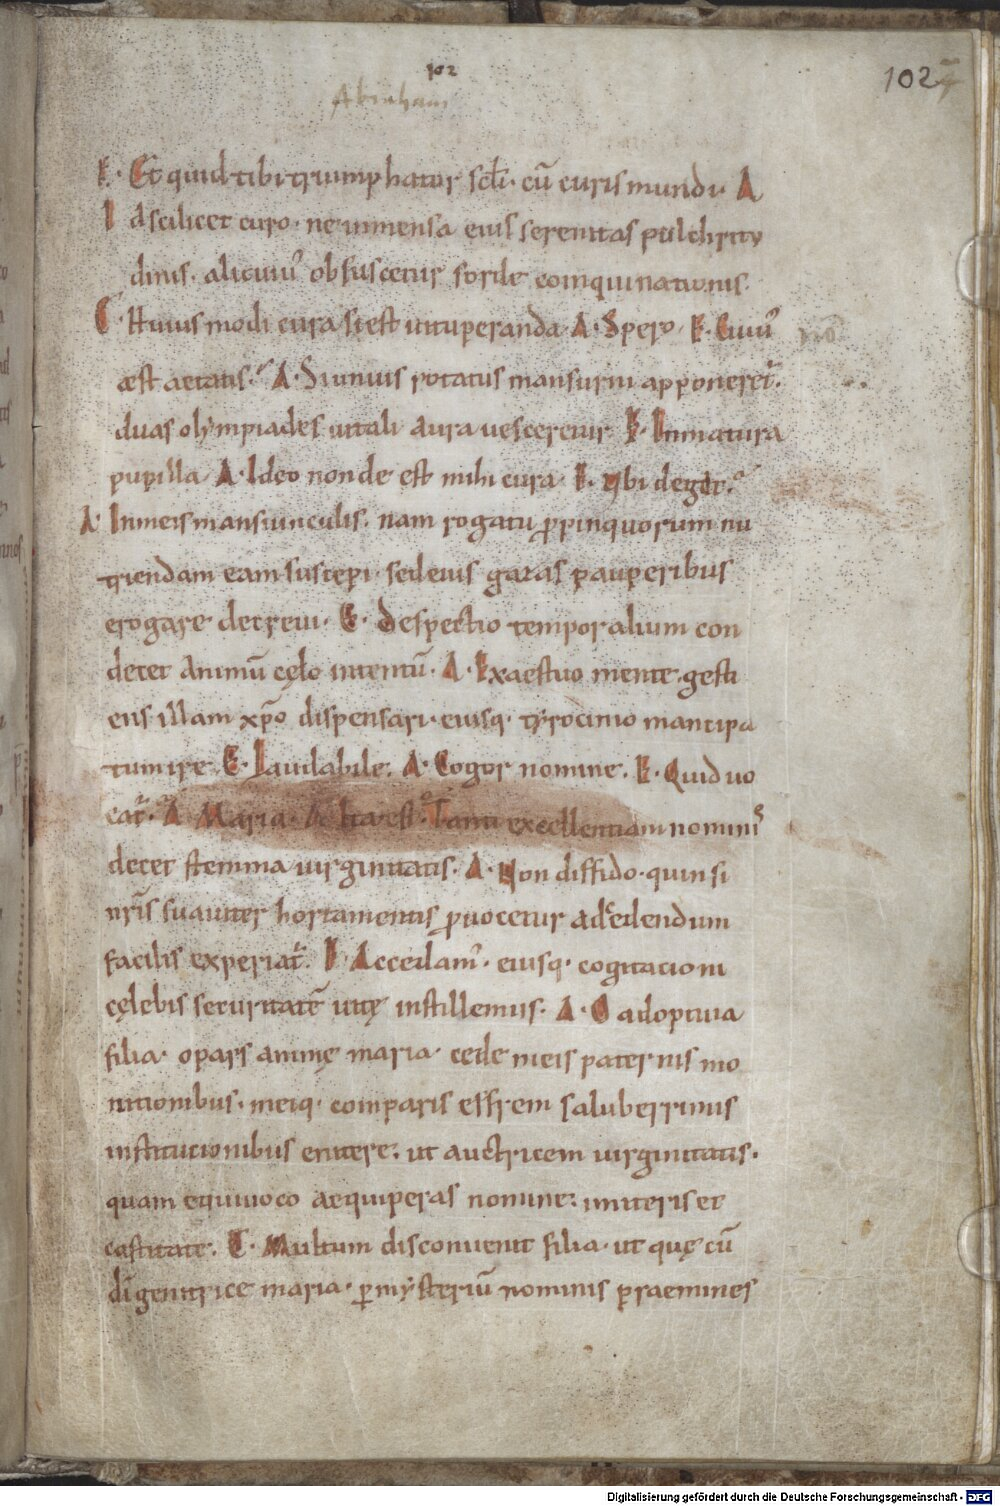 102
102
Abraham
E· Et quid tibi triumphator scłi· cū curis mundi· A
Id scilicet curo· ne inmensa eius serenitas pulchritu
dinis· alicuiꝰ obfuscetur sorde coinquinationis·
E· Huius modi cura si est uituperanda· A· Spero· E· Cuiuꝰ
æst aetatis? A· Si unius rotatus mansurni apponeret̃·
duas olympiades uitali aura uesceretur· E· Inmatura
pupilla· A· Ideo non de est mihi cura· E· Ubi deget?
A· In meis mansiunculis· nam rogatu ꝓpinquorum nu
triendam eam suscepi· sed eius gazas pauperibus
erogare decreui· E· Despectio temporalium con
decet animū cęlo intentū· A· Exaestuo mente· gesti
ens illam xp̄o dispensari· eiusq· tyrocinio mancipa
tum ire· E· Laudabile· A· Cogor nomine· E· Quid uo
cat̃· A Maria· E Ita est? Tanti excellentiam nominiꝰ
decet stemma uirginitatis· A· Non diffido· quin si
nr̄is suauiter hortamentis ꝓuocetur ad cedendum
facilis experiat̃· E· Accedamꝰ· eiusq· cogitationi
cęlebis securitatē uitę instillemus· A· O adoptiua
filia· o pars animę maria· cede meis paternis mo
nitionibus· meiq· comparis effrem saluberrimis
institucionibus enitere· ut auctricem uirginitatis·
quam equiuoco aequiperas nomine; imiteris et
castitate· E· Multum disconuenit filia· ut quę cū
dī genitrice maria· ꝑ mysteriū nominis praemines
Digitalisierung gefördert durch die Deutsche Forschungsgemeinschaft - DFG